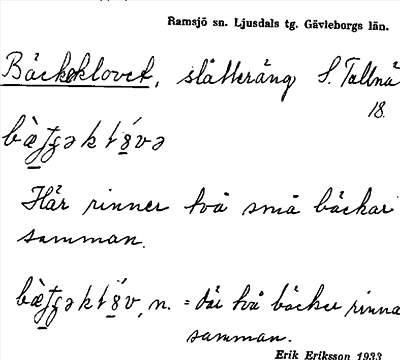 Ramsjö sn. Ljusdals tg. Gävleborgs län.
Bäckeklovet, slåtteräng S. Tallnä
18.
Här rinner två små bäckar
samman.
n. = där två bäcker rinna
samman.
Erik Eriksson 1933